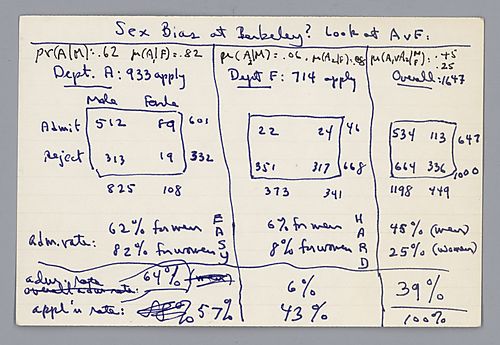 Sex Bias at Berkeley? Look at A v F:
pr(A|M):.62 pr(A|F)=.82
Dept. A: 933 apply
Male Female
Admit 512 89 601
Reject 313 19 332
825 108
adm. rate: 62% for men
82% for women
EASY
adm. rate 64%
overall adm rate:
appl'n rate: 57%
Dept F: 714 apply
22 24 46
351 317 668
373 341
6% for men
8% for women
HARD
6%
43%
Overall: 1647
534 113 647
664 336 1000
1198 449
45% (men)
25% (women)
39%
100%